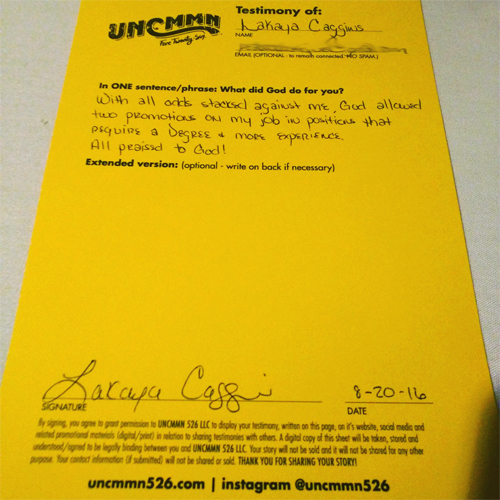 UNCMMN
Five Twenty-Six
Testimony of:
Lakaya Caggins
NAME
EMAIL (OPTIONAL - to remain connected. NO SPAM)
In ONE sentence/phrase: What did God do for you?
With all odds stacked against me, God allowed
two promotions on my job in positions that
require a Degree & more experience.
All praised to God!
Extended version: (optional - write on back if necessary)
Lakaya Caggi
SIGNATURE
8-20-16
DATE
By signing, you agree to grant permission to UNCMMN 526 LLC to display your testimony, written on this page, on it's website, social media and
related promotional materials (digital/print) in relation to sharing testimonies with others. A digital copy of this sheet will be taken, stored and
understood/agreed to be legally binding between you and UNCMMN 526 LLC. Your story will not be sold and it will not be shared for any other
purpose. Your contact information (if submitted) will not be shared or sold. THANK YOU FOR SHARING YOUR STORY!
uncmmn526.com | instagram @uncmmn526